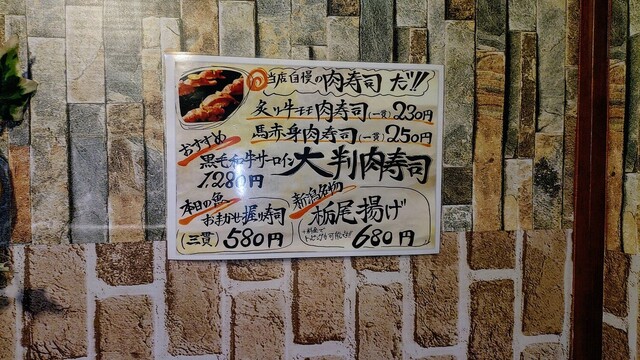 当店自慢の肉寿司だ!!
炙り牛モモ肉寿司(一貫)230円
馬赤身肉寿司(一貫)250円
おすすめ
黒毛和牛サーロイン大判肉寿司
1,280円
本日の魚
おまかせ握り寿司
(三貫)580円
新潟名物
栃尾揚げ
680円